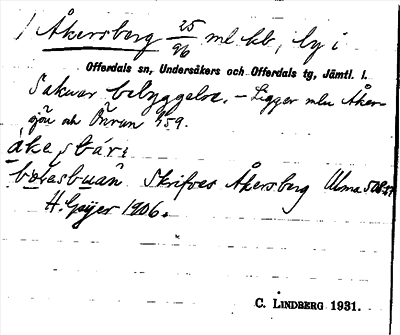 / Åkersberg 25/96 ml kb, by i
Offerdals sn, Undersåkers och Offerdals tg, Jämtl. l.
Saknar bebyggelse. – Ligger mln Åker-
sjön och Önrun 459.
åkeṣbár:
Skrifves Åkersberg Ulma
H. Geijer 1906.
C. LINDBERG 1931.